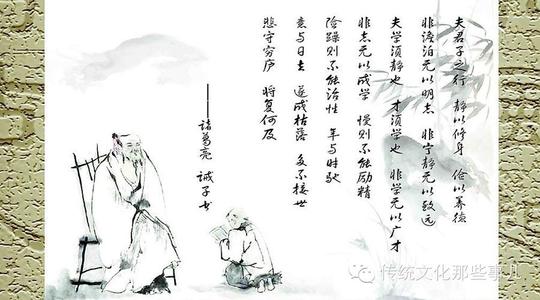 夫君子之行 静以修身 俭以养德
非淡泊无以明志 非宁静无以致远
夫学须静也 才须学也 非学无以广才
非志无以成学 慢则不能励精
险躁则不能治性 年与时驰
意与日去 遂成枯落 多不接世
悲守穷庐 将复何及
——诸葛亮 诫子书
传统文化那些事儿